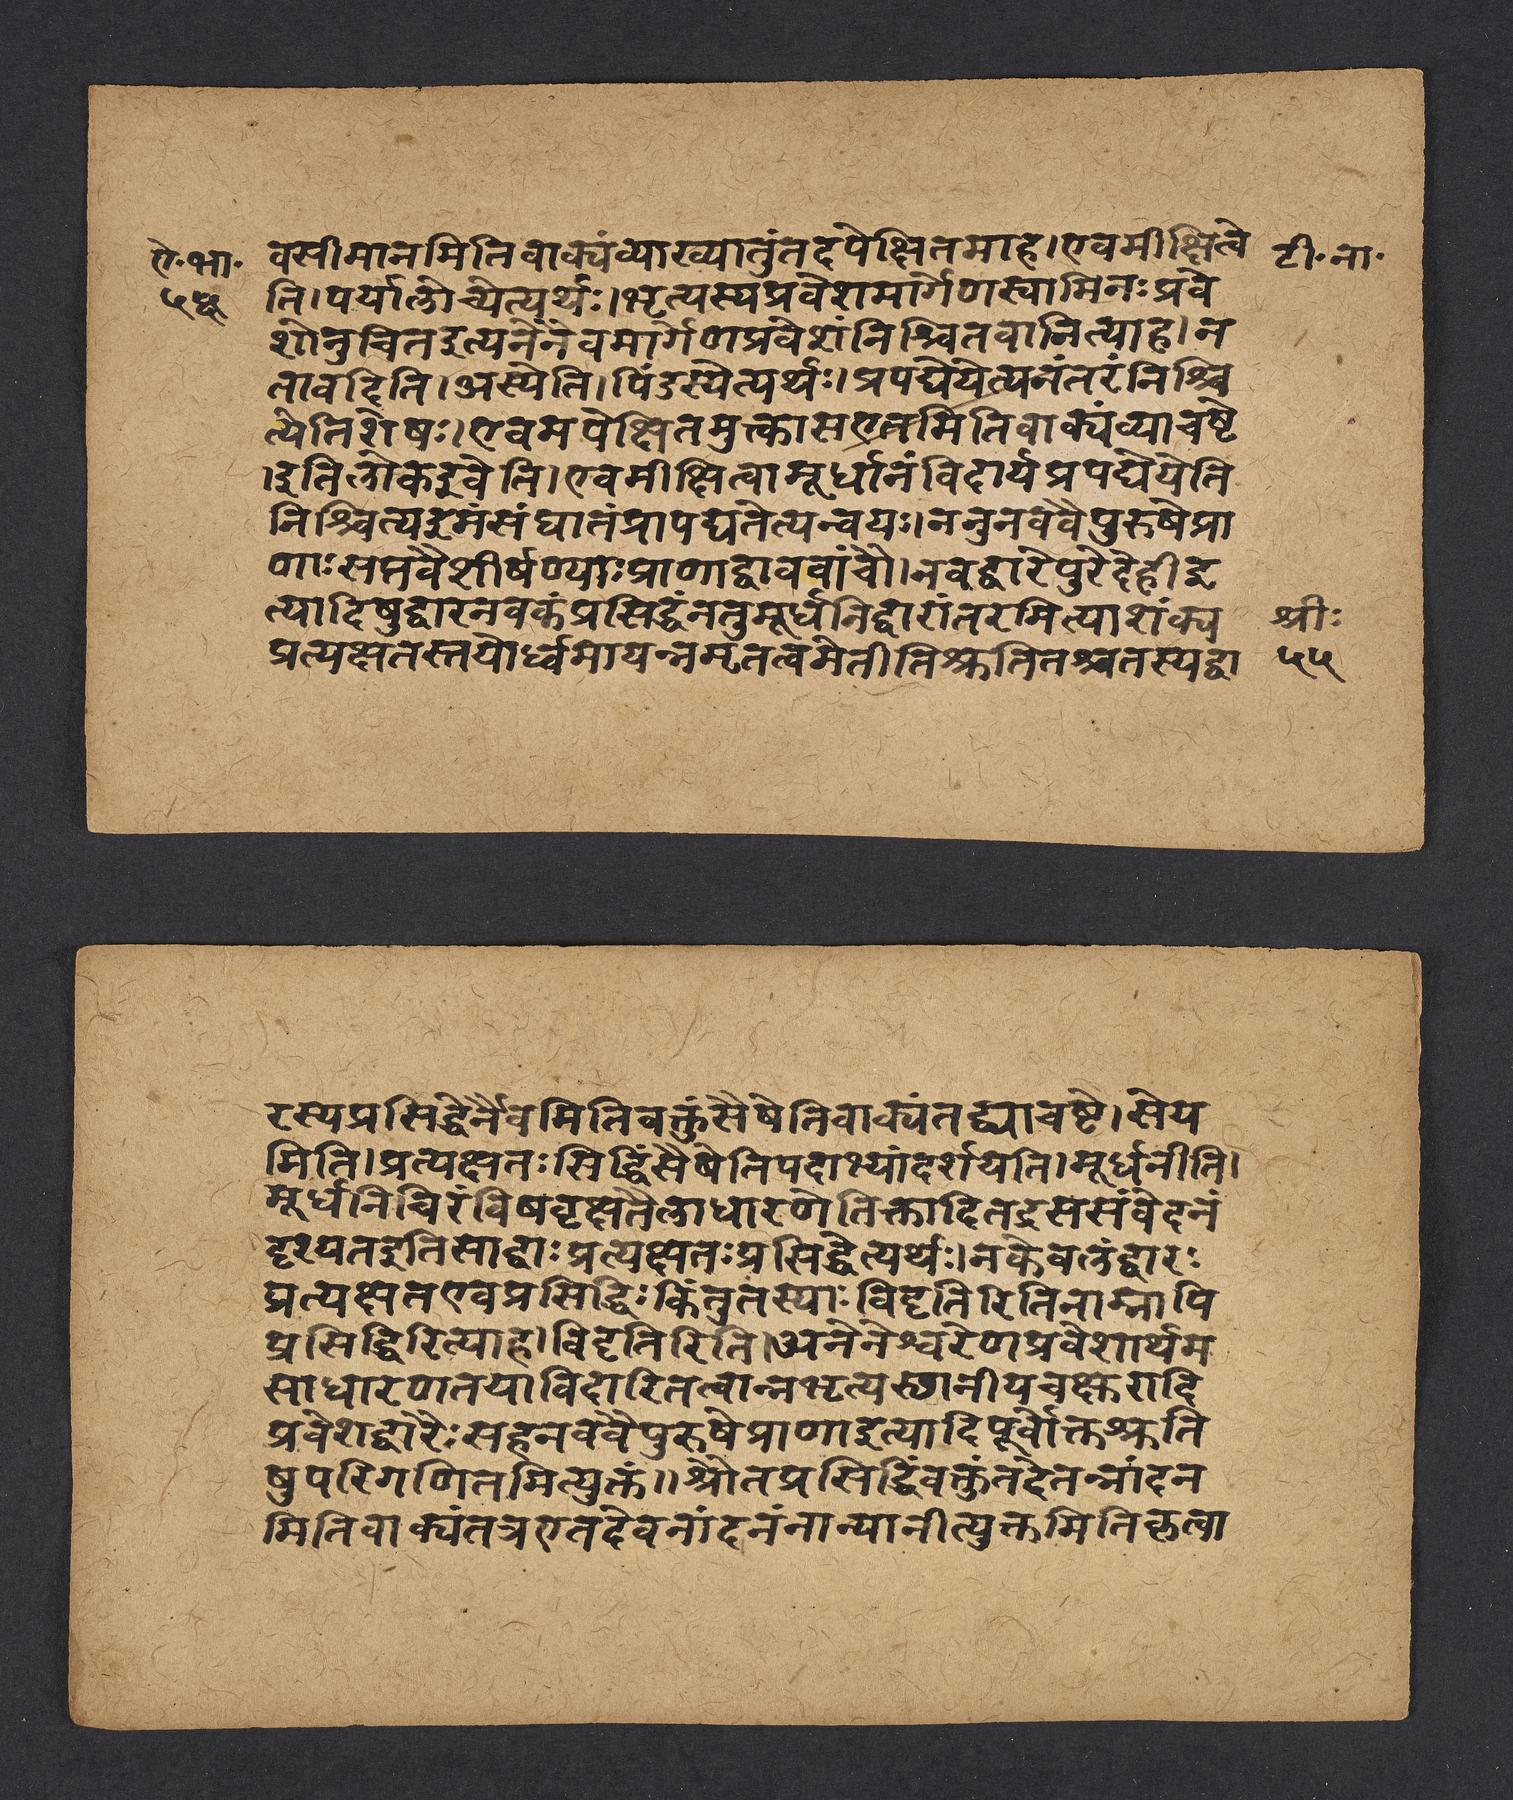 ऐ·भा· वसीमानमितिवाक्यंव्याख्यातुंतदपेक्षितमाह।एवमीक्षित्वे टी·ना·
५५ ति।पर्यालोच्येत्यर्थः।भृत्यस्यप्रवेशमार्गेणस्वामिनःप्रवे
शोनुचितइत्यनेनैवमार्गेणप्रवेशंनिश्चितवानित्याह।न
तावदिति।अस्येति।पिंडस्येत्यर्थः।प्रपद्येयेत्यनंतरंनिश्चि
त्येतिशेषः।एवमपेक्षितमुत्कासएतमितिवाक्यंव्याचष्टे
।इतिलोकइवेति।एवमीक्षित्वामूर्धानंविदार्यप्रपद्येयेति
निश्चित्यइमंसंघातंप्रापद्यतेत्यन्वयः।ननुनववैपुरुषेप्रा
णाःसप्तवैशीर्षण्याःप्राणाद्वाववांचौ।नवद्वारेपुरेदेहीइ
त्यादिषुद्वारनवकंप्रसिद्धंनतुमूर्धनिद्वारांतरमित्याशंक्य श्रीः
प्रत्यक्षतस्तयोर्ध्वमायन्नमृतत्वमेतीतिश्रुतितश्चतस्यद्वा ५५
रस्यप्रसिद्धेर्नैवमितिवक्तुंसैषेतिवाक्यंतद्व्याचष्टे।सेय
मिति।प्रत्यक्षतःसिद्धिंसैषेतिपदाभ्यांदर्शयति।मूर्धनीति।
मूर्धनिचिरंविषवृक्षतैलाधारणेतिक्तादितद्रससंवेदनं
दृश्यतइतिसाद्वाःप्रत्यक्षतःप्रसिद्धेत्यर्थः।नकेवलंद्वारः
प्रत्यक्षतएवप्रसिद्धिःकिंतुतस्याःविदृतिरितिनाम्नापि
प्रसिद्धिरित्याह।विदृतिरिति।अनेनेश्वरेणप्रवेशार्थम
साधारणतयाविदारितत्वान्नभृत्यस्थानीयचक्षुरादि
प्रवेशद्वारैःसहनववैपुरुषेप्राणाइत्यादिपूर्वोक्तश्रुति
षुपरिगणितमित्युक्तं॥श्रौतप्रसिद्धिंवक्तुंतदेतन्नांदन
मितिवाक्यंतत्रएतदेवनांदनंनान्यानीत्युक्तमितिकृत्वा